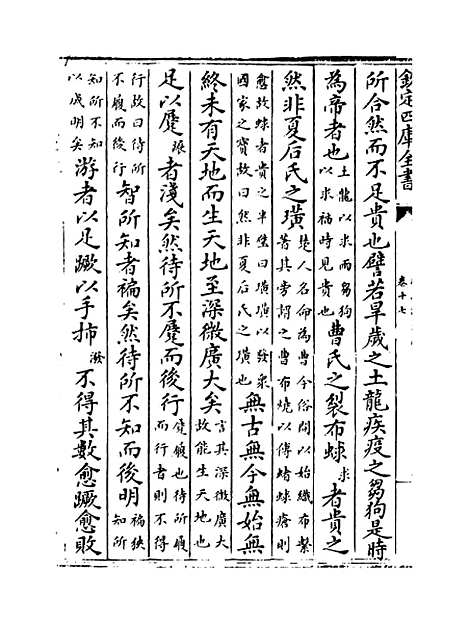 欽定四庫全書
卷十七
所合然而不足貴也譬若旱歲之土龍疾疫之芻狗是時
為帝者也土龍以求雨芻狗
以求福時見貴也曹氏之裂布蛷求者貴之
然非夏后氏之璜楚人名命為曹今俗間以始織布繫
著其旁謂之曹布燒以傅蝫蛷瘡則
愈故蛷者貴之半璧曰璜璜以發衆
國家之寳故曰然非夏后氏之璜也無古無今無始無
終未有天地而生天地至深微廣大矣言其深微廣大
故能生天地也
足以蹍者淺矣然待所不蹍而後行蹍履也待所履
而行者則不得
行故曰待所
不履而後行智所知者褊矣然待所不知而後明褊狹
知所
知所不知
以成明矣游者以足蹶以手㧊潑不得其數愈蹶愈敗